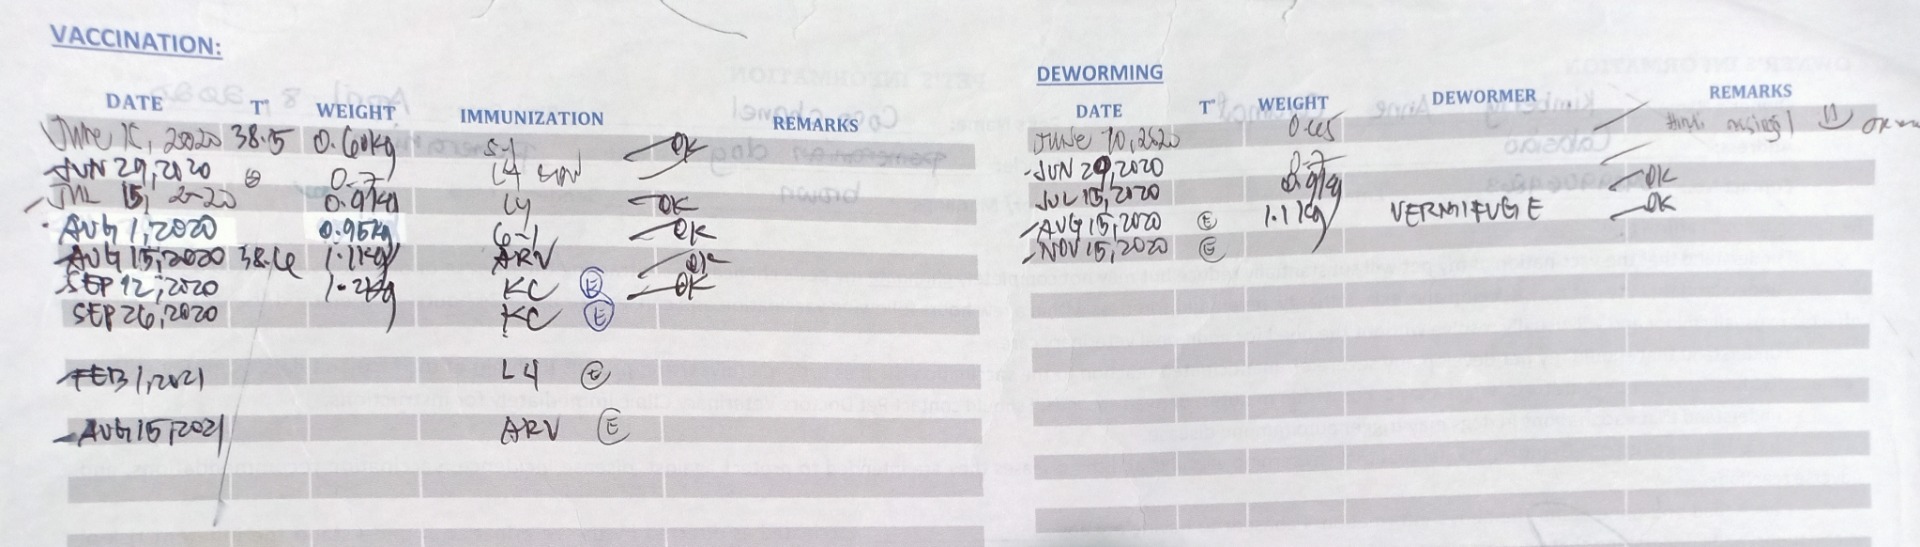 VACCINATION:
DATE T° WEIGHT IMMUNIZATION REMARKS
JUNE 2020 38.5 0.60kg 5-1 OK
JUN 29, 2020 0.7 L4
JUL 15, 2020 0.9kg L4 OK
AUG 1, 2020 0.95kg 6-1 OK
AUG 15, 2020 38.6 1.1kg ARV OK
SEP 12, 2020 1.2kg KC E OK
SEP 26, 2020 KC E
FEB 1, 2021 L4 E
AUG 15, 2021 ARV E
DEWORMING
DATE T° WEIGHT DEWORMER REMARKS
JUNE 10, 2020
JUN 29, 2020 0.7
JUL 15, 2020 0.9kg OK
AUG 15, 2020 E 1.1kg VERMIFUGE OK
NOV 15, 2020 E